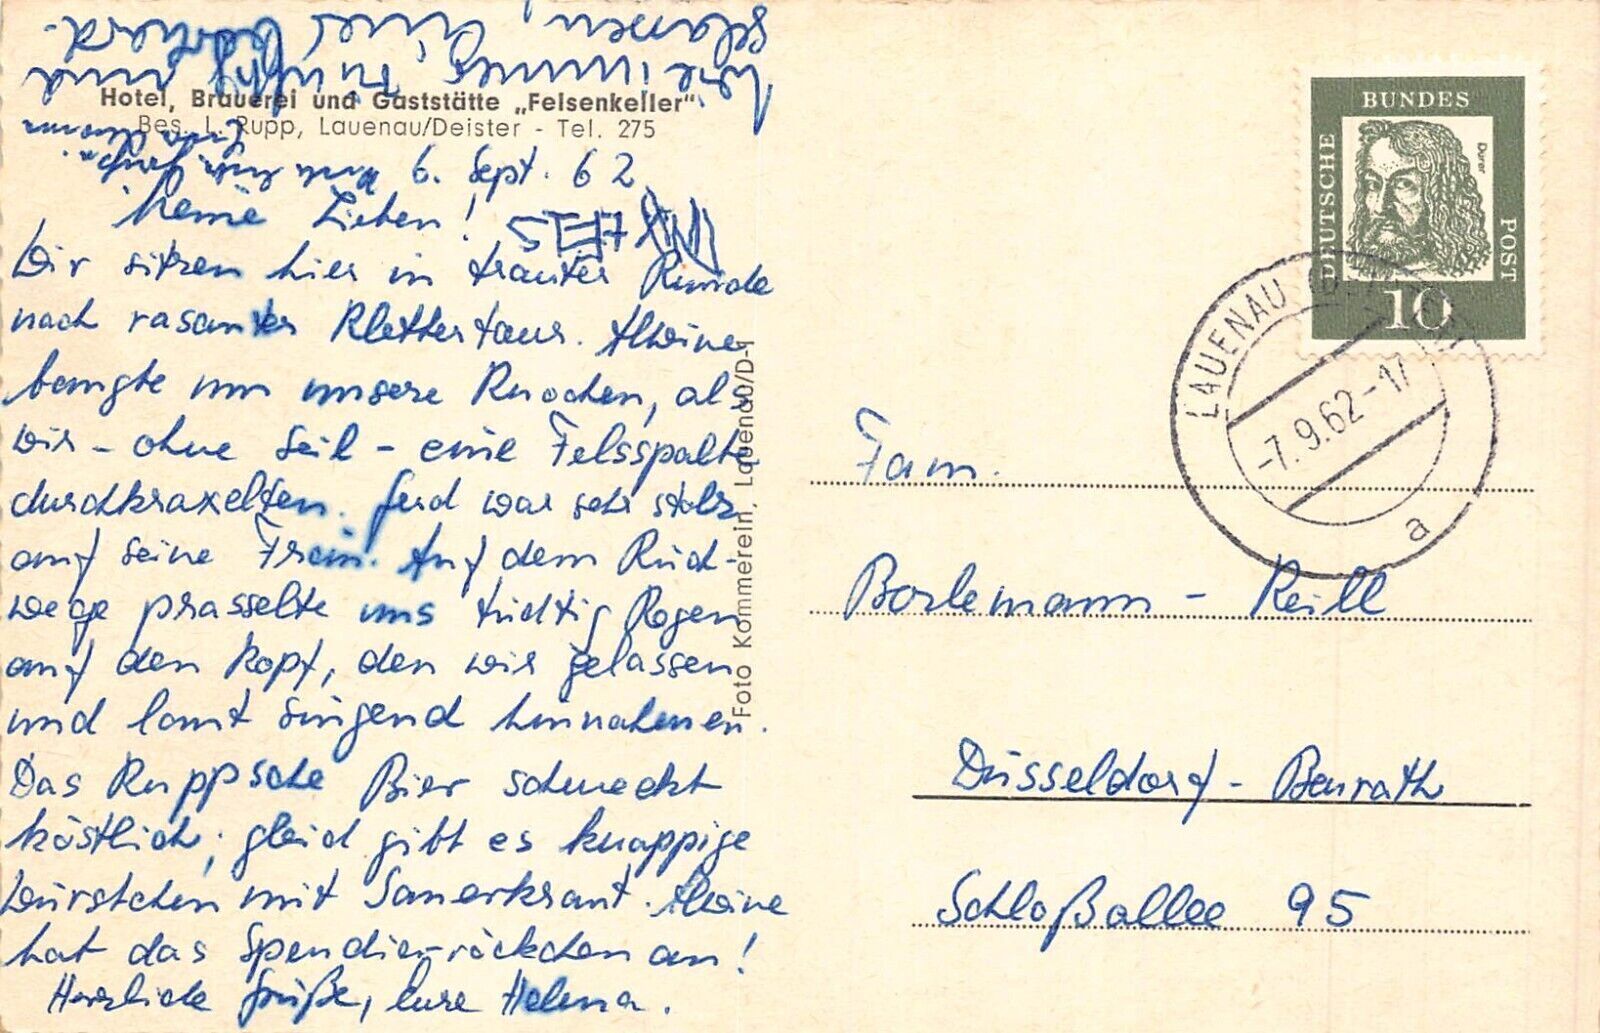 Hotel, Brauerei und Gaststätte „Felsenkeller"
Bes. L. Rupp, Lauenau/Deister - Tel. 275
6. Sept. 62
Meine Lieben!
Wir sitzen hier in trauter Runde
nach rasanter Klettertour. Alwine
bangte um unsere Knochen, als
wir - ohne Seil - eine Felsspalte
durchkraxelten. Gerd war sehr stolz
auf seine Frau. Auf dem Rück-
wege prasselte uns tüchtig Regen
auf den Kopf, den wir gelassen
und laut singend hinnahmen.
Das Ruppsche Bier schmeckt
köstlich, gleich gibt es knappige
Würstchen mit Sauerkraut. Alwine
hat das Spendier-röckchen an!
Herzliche Grüße, Eure Helena.
wie immer, frisch und
gelassen, Euer
Foto Kommerein, Lauenau/D-1
DEUTSCHE
BUNDES
POST
Dürer
10
LAUENAU
-7.9.62-17
a
Fam.
Borlemann - Keill
Düsseldorf - Benrath
Schloßallee 95